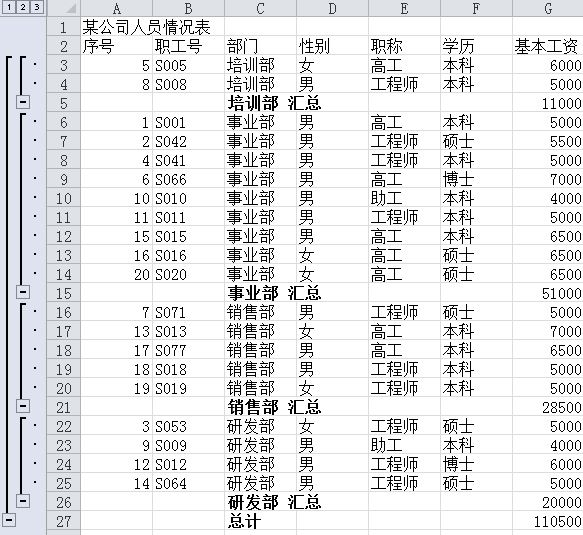 1 2 3
A B C D E F G
1 某公司人员情况表
2 序号 职工号 部门 性别 职称 学历 基本工资
3 5 S005 培训部 女 高工 本科 6000
4 8 S008 培训部 男 工程师 本科 5000
5 培训部 汇总 11000
6 1 S001 事业部 男 高工 本科 5000
7 2 S042 事业部 男 工程师 硕士 5500
8 4 S041 事业部 男 工程师 本科 5000
9 6 S066 事业部 男 高工 博士 7000
10 10 S010 事业部 男 助工 本科 4000
11 11 S011 事业部 男 工程师 本科 5000
12 15 S015 事业部 男 高工 本科 6500
13 16 S016 事业部 女 高工 硕士 6500
14 20 S020 事业部 女 高工 硕士 6500
15 事业部 汇总 51000
16 7 S071 销售部 男 工程师 硕士 5000
17 13 S013 销售部 女 高工 本科 7000
18 17 S077 销售部 男 高工 本科 6500
19 18 S018 销售部 男 工程师 本科 5000
20 19 S019 销售部 女 工程师 本科 5000
21 销售部 汇总 28500
22 3 S053 研发部 女 工程师 硕士 5000
23 9 S009 研发部 男 助工 本科 4000
24 12 S012 研发部 男 工程师 博士 6000
25 14 S064 研发部 男 工程师 硕士 5000
26 研发部 汇总 20000
27 总计 110500